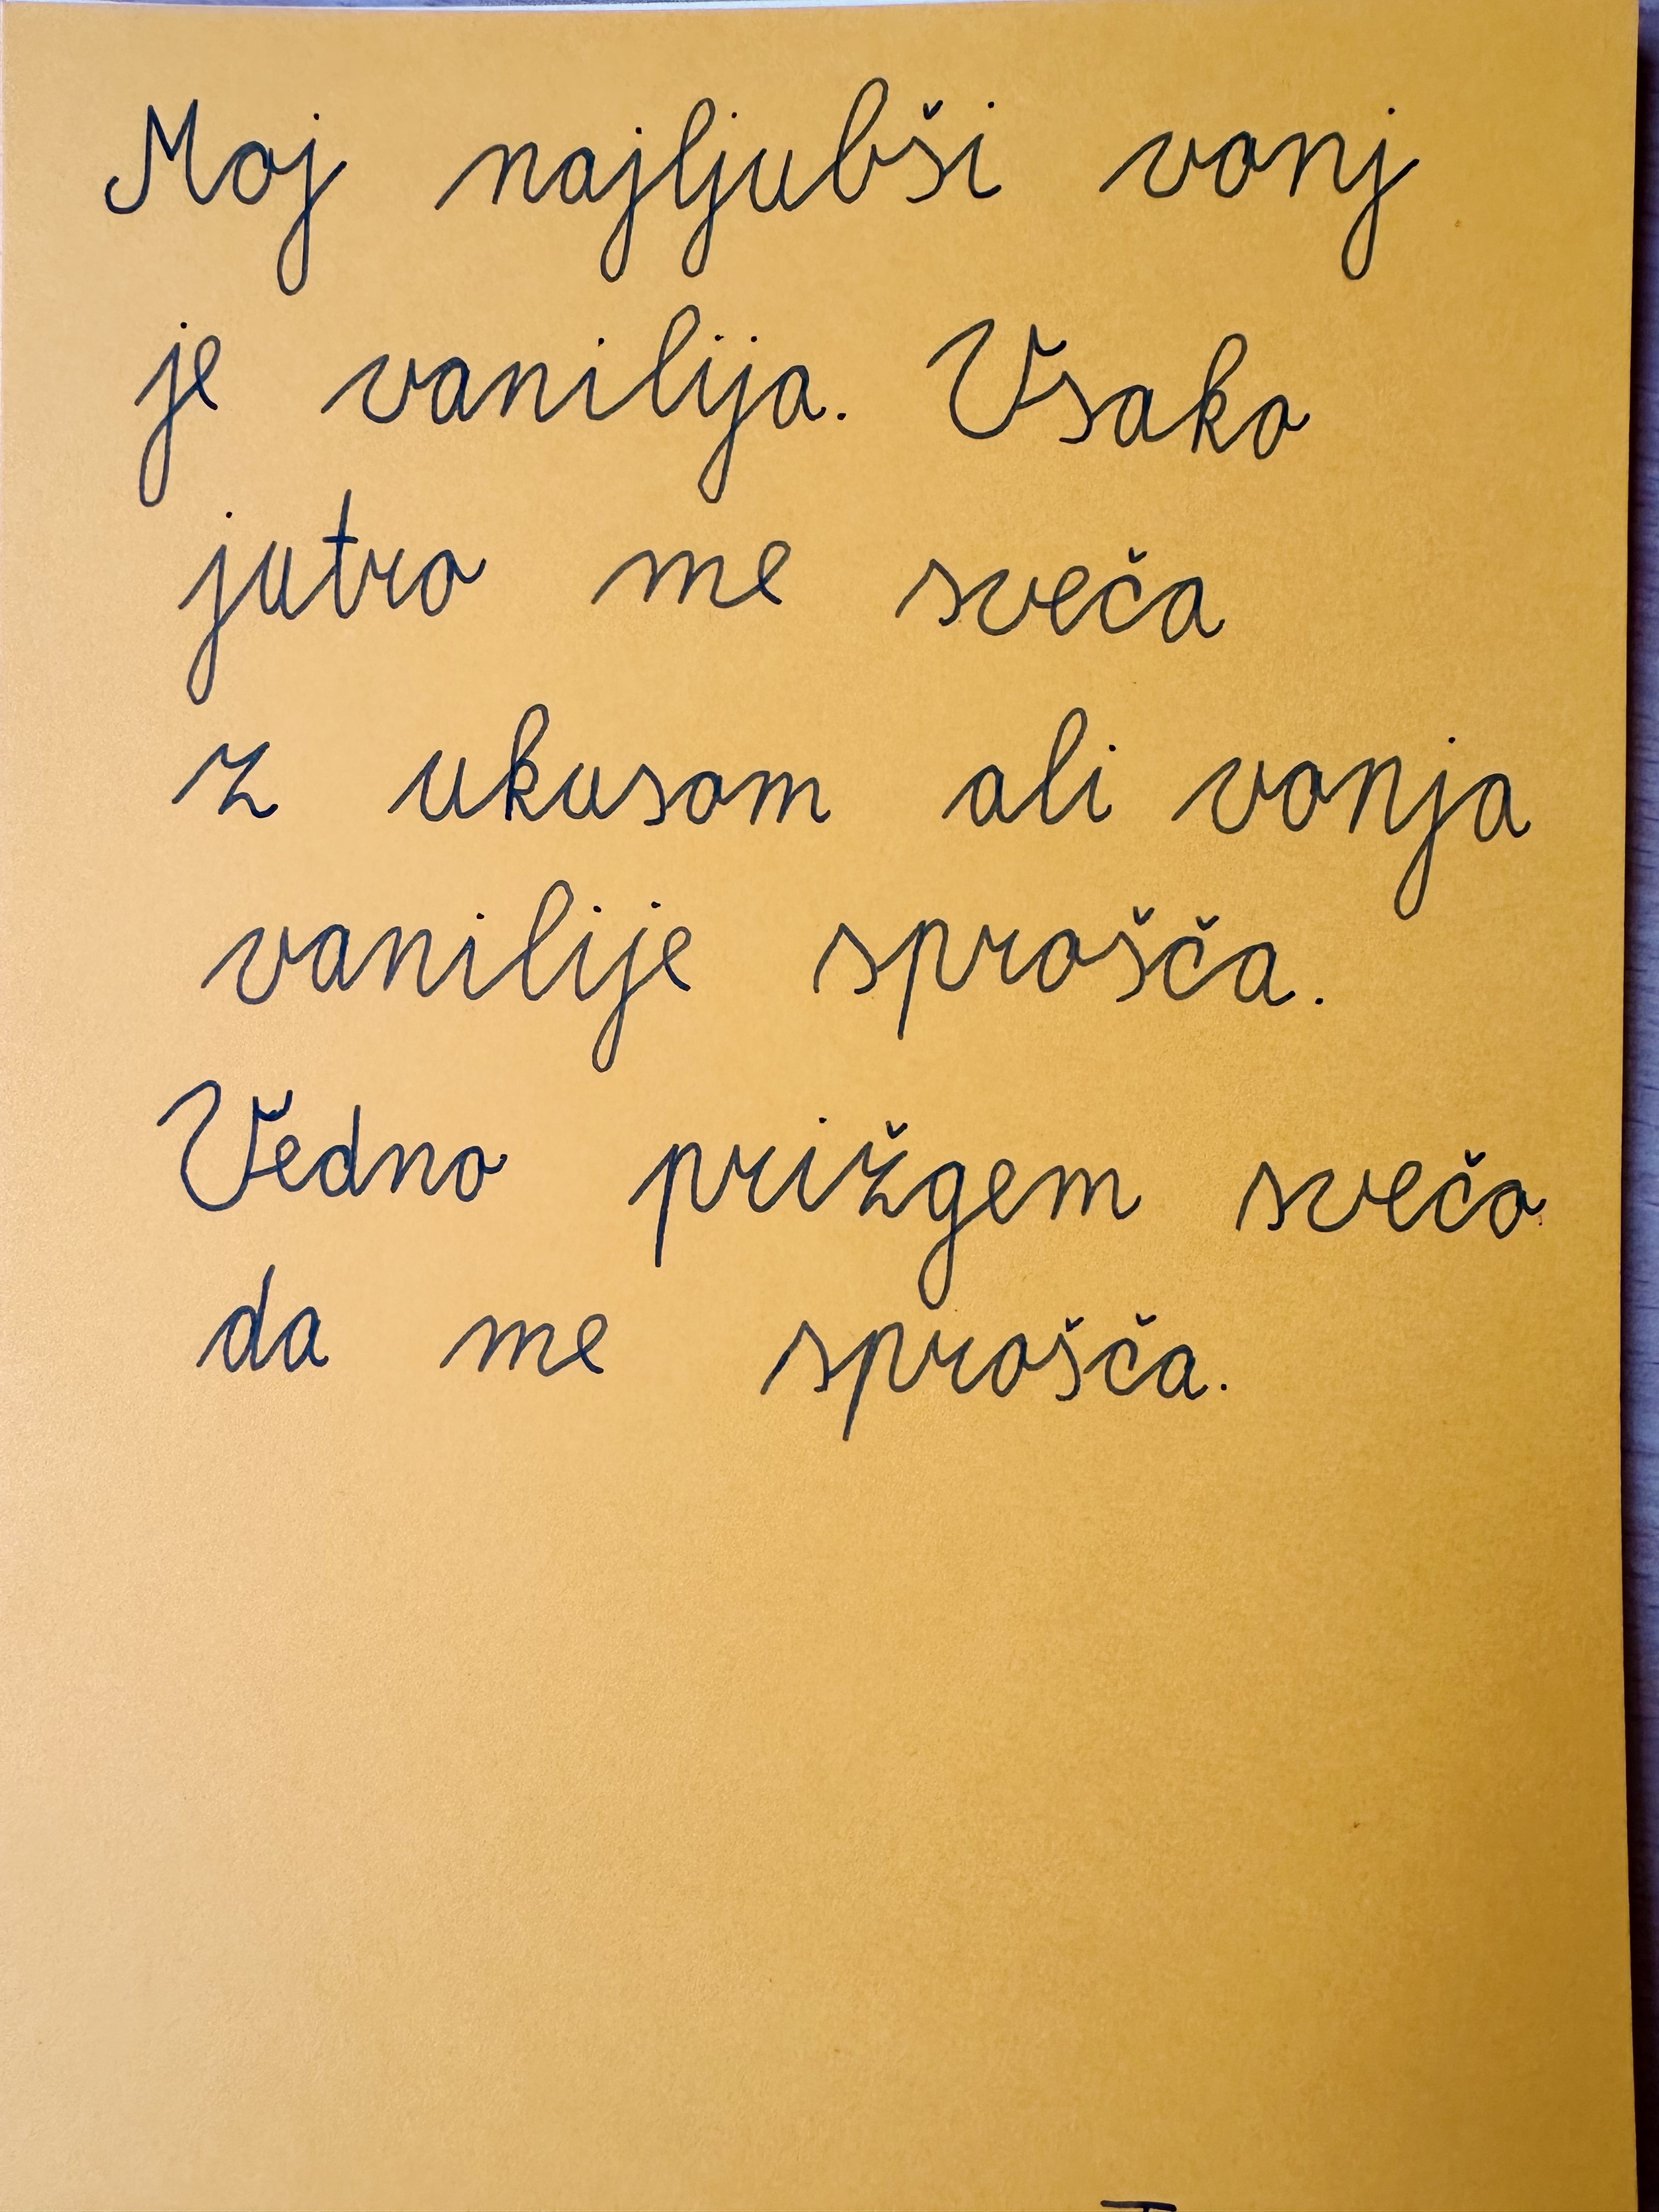 Moj najljubši vonj
je vanilija. Vsako
jutro me sveča
z ukusom ali vonja
vanilije sprošča.
Vedno prižgem svečo
da me sprošča.